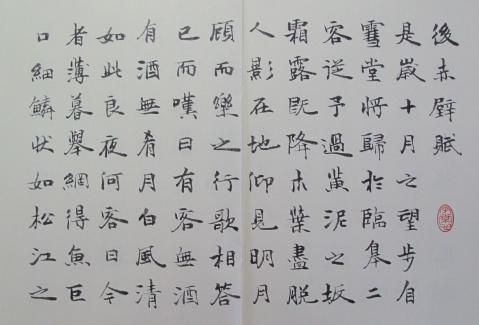 後赤壁賦
是歲十月之望步自
雪堂將歸於臨皋二
客從予過黃泥之坂
霜露既降木葉盡脫
人影在地仰見明月
顧而樂之行歌相答
已而嘆曰有客無酒
有酒無肴月白風清
如此良夜何客曰今
者薄暮舉網得魚巨
口細鱗狀如松江之